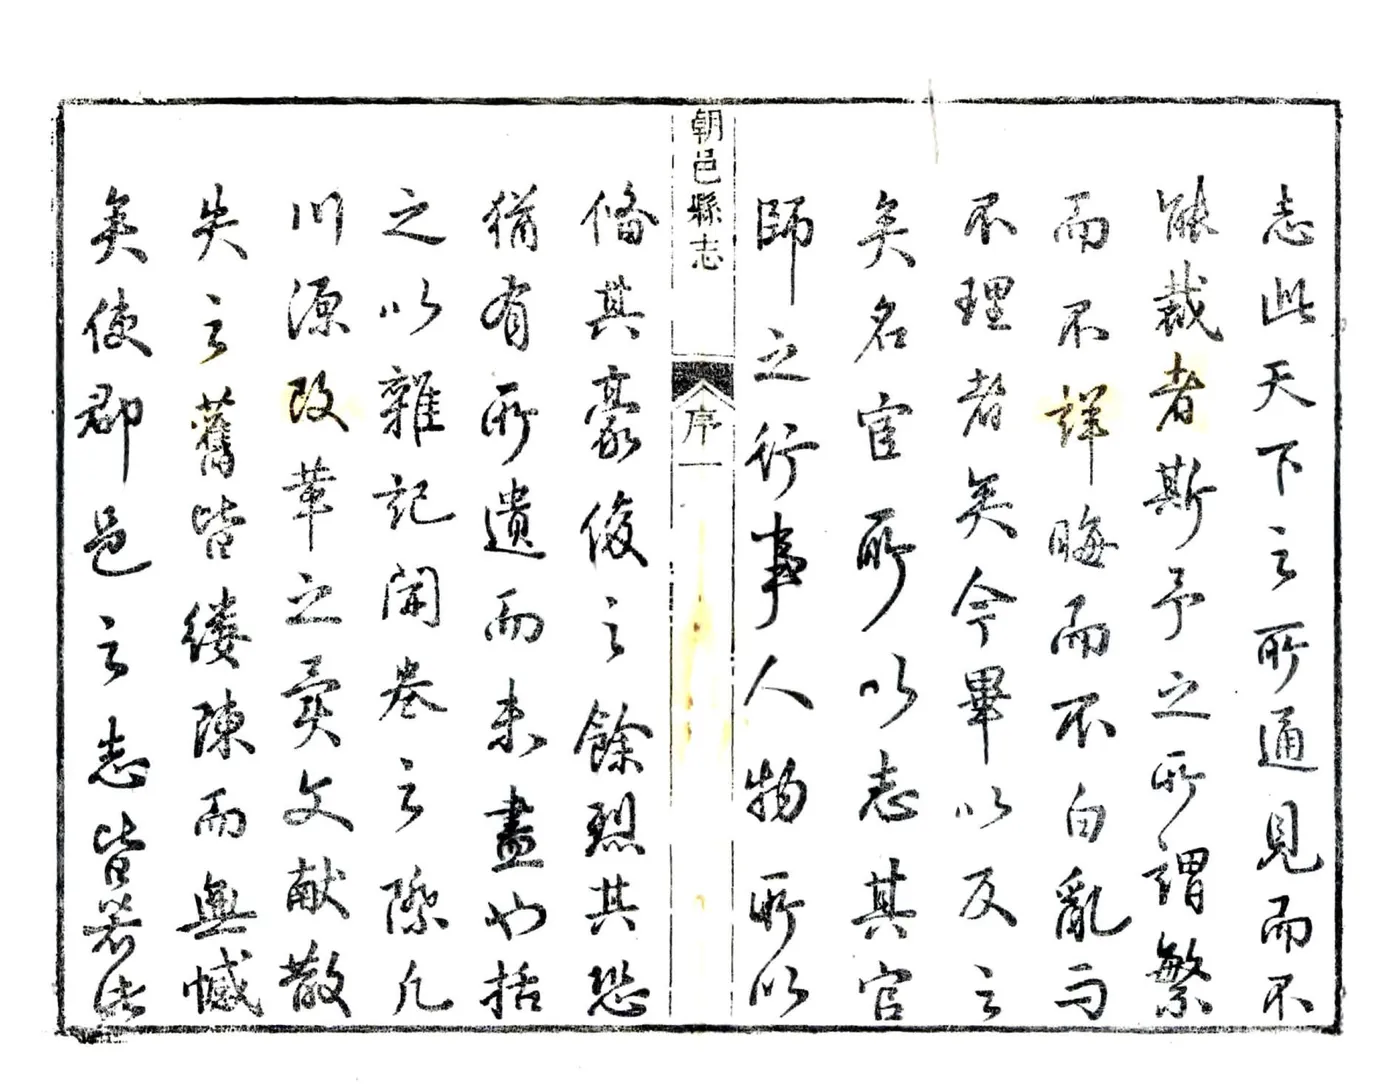 志此天下之所通見而不
能裁者斯予之所謂繁
而不詳晦而不白亂而
不理者矣今畢以反之
矣名宦所以志其官
師之行事人物所以
朝邑縣志
序
一
俻其豪俊之餘烈其恐
猶有所遺而未盡也括
之以雜記開卷之際凡
川源改革之異文献散
失之舊皆縷陳而無憾
矣使郡邑之志皆若此